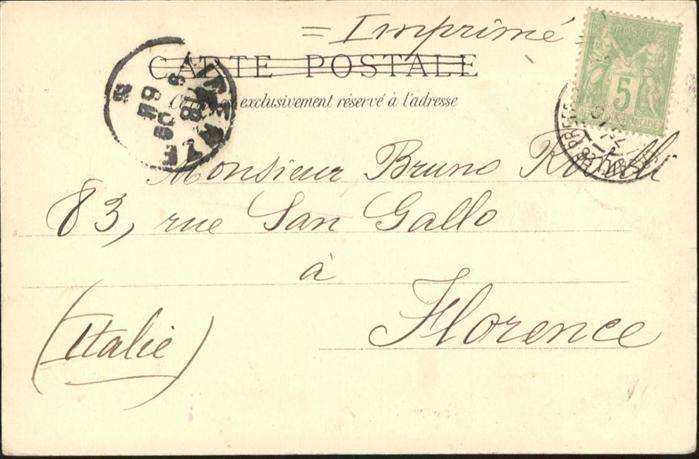 = Imprimé
CARTE POSTALE
exclusivement réservé à l'adresse
5
Monsieur Bruno
83, rue San Gallo
à
Florence
(Italie)